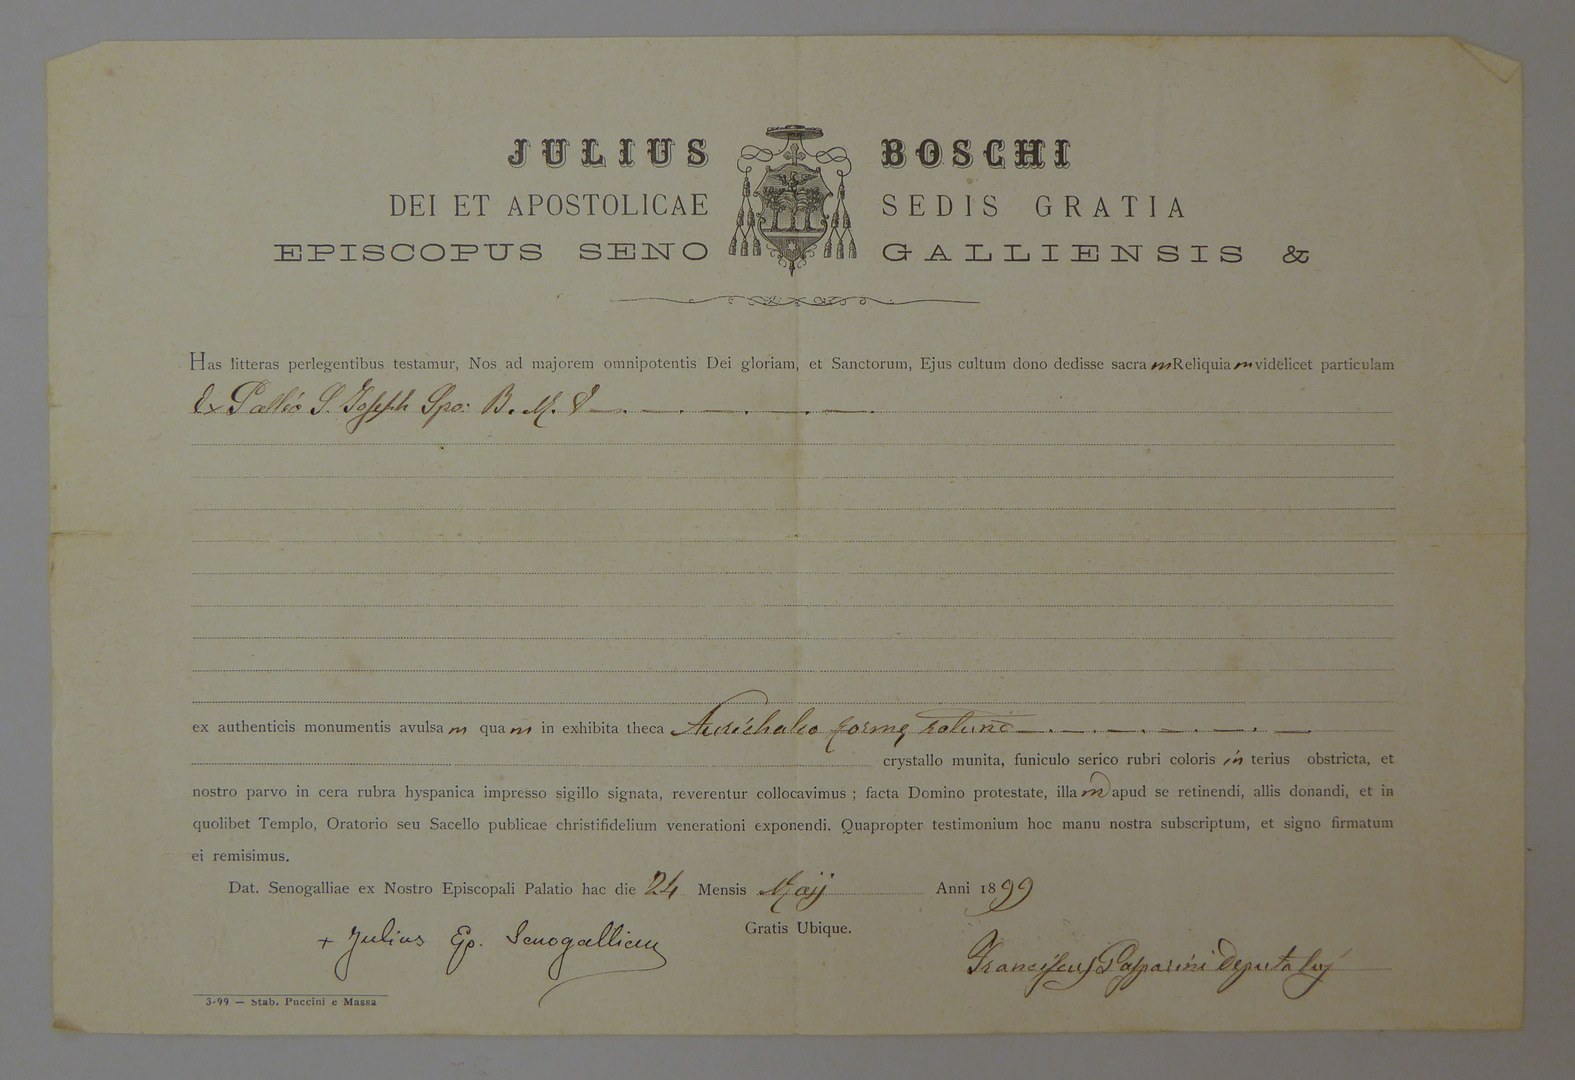 JULIUS BOSCHI
DEI ET APOSTOLICAE SEDIS GRATIA
EPISCOPUS SENOGALLIENSIS &
Has litteras perlegentibus testamur, Nos ad majorem omnipotentis Dei gloriam, et Sanctorum, Ejus cultum dono dedisse sacram Reliquiam videlicet particulam
Ex Pallio S. Joseph Spo: B. M. V.
ex authenticis monumentis avulsam quam in exhibita theca Aurichalco formę rotund
crystallo munita, funiculo serico rubri coloris in terius obstricta, et
nostro parvo in cera rubra hyspanica impresso sigillo signata, reverentur collocavimus ; facta Domino protestate, illam apud se retinendi, allis donandi, et in
quolibet Templo, Oratorio seu Sacello publicae christifidelium venerationi exponendi. Quapropter testimonium hoc manu nostra subscriptum, et signo firmatum
ei remisimus.
Dat. Senogalliae ex Nostro Episcopali Palatio hac die 24 Mensis Maij Anni 1899
Gratis Ubique.
+ Julius Ep. Senogallien
Franciscus Gasparini Deputatus
3-99 — Stab. Puccini e Massa